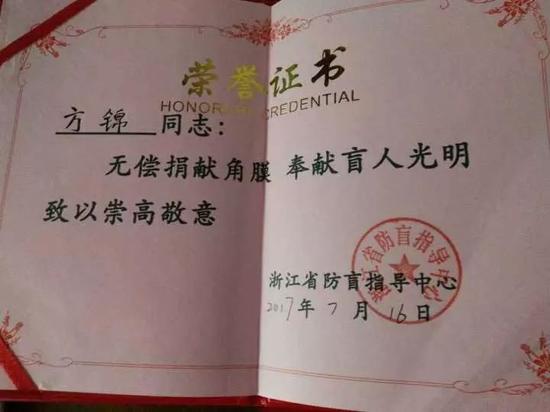 荣誉证书
HONOR CREDENTIAL
方锦 同志：
无偿捐献角膜 奉献盲人光明
致以崇高敬意
浙江省防盲指导中心
浙江省防盲指导中心
2017年7月16日